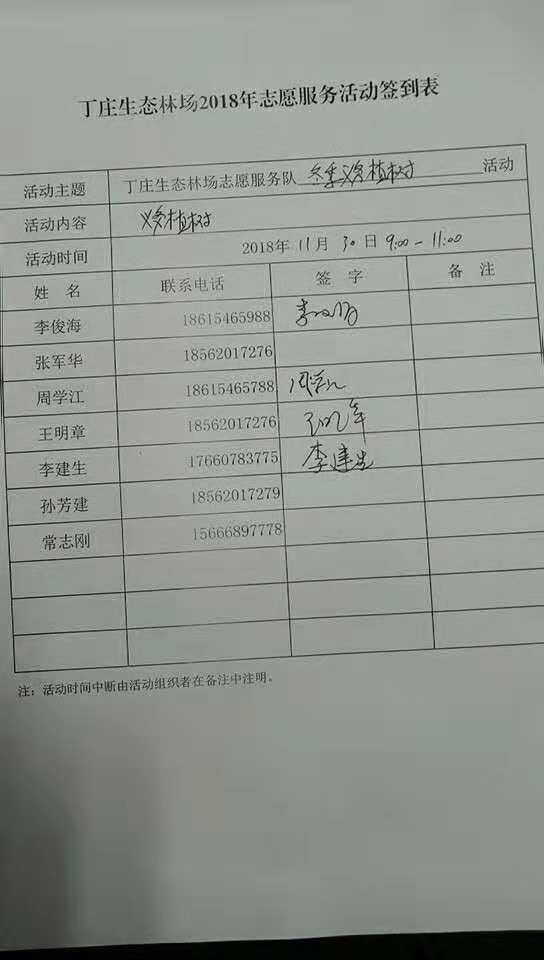 丁庄生态林场2018年志愿服务活动签到表
活动主题 丁庄生态林场志愿服务队 冬季义务植树 活动
活动内容 义务植树
活动时间 2018年 11月 30日 9:00-11:00
姓 名 联系电话 签 字 备 注
李俊海 18615465988
张军华 18562017276
周学江 18615465788 周学江
王明章 18562017276
李建生 17660783775 李建生
孙芳建 18562017279
常志刚 15666897778
注：活动时间中断由活动组织者在备注中注明。